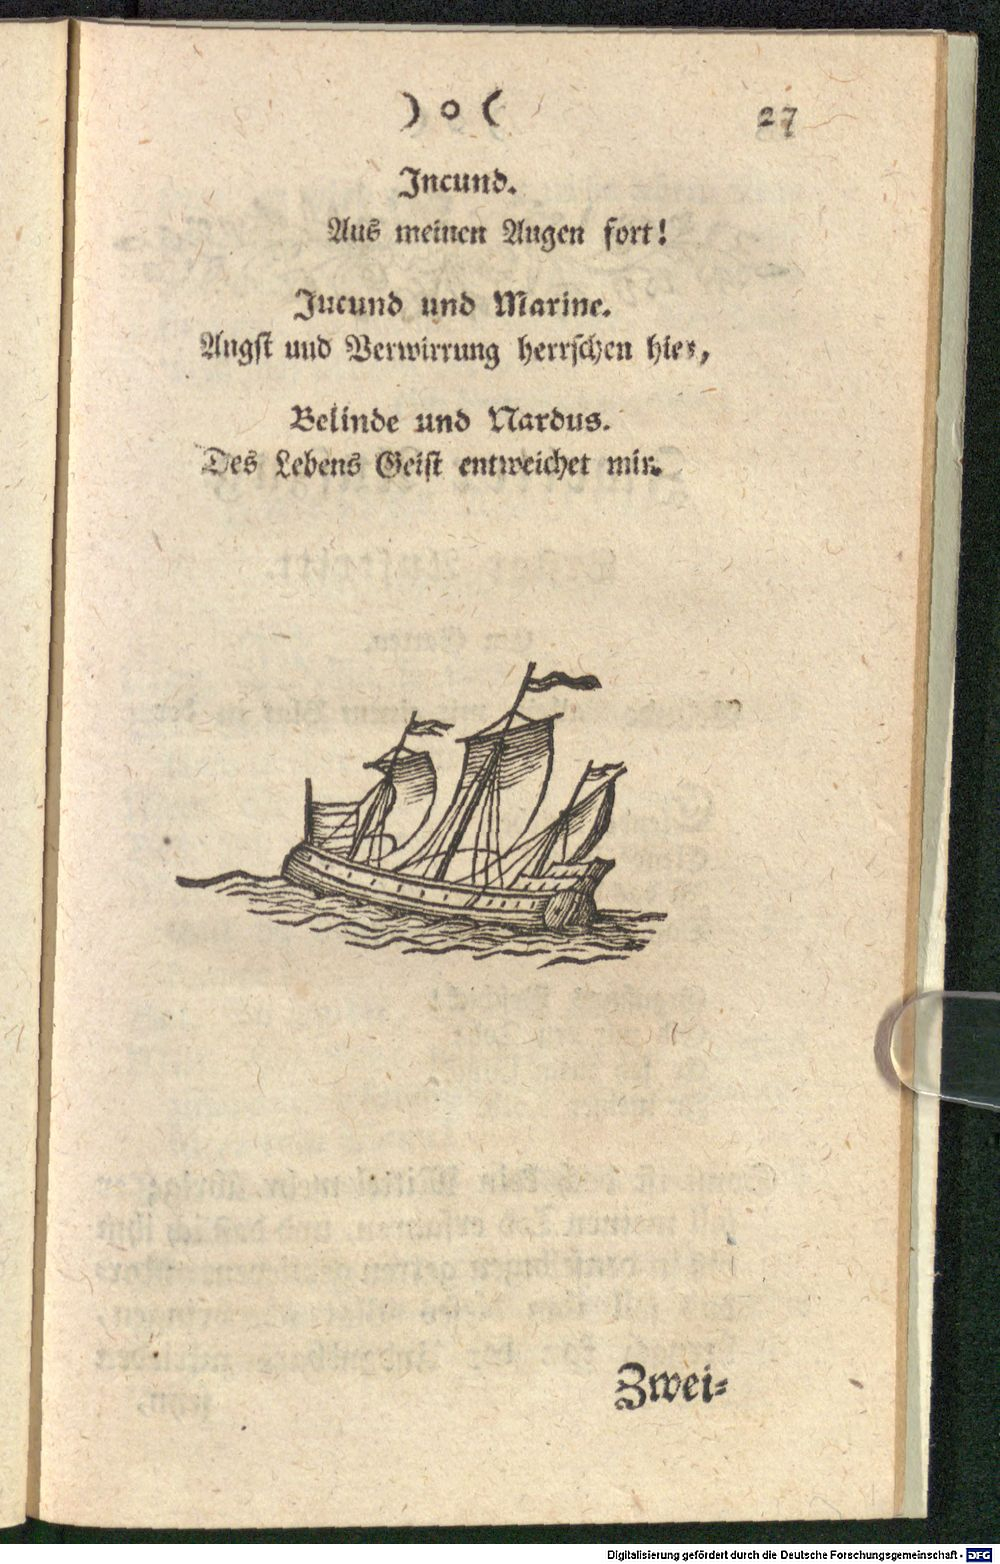 ) o ( 27
Jncund.
Aus meinen Augen fort!
Jucund und Marine.
Angst und Verwirrung herrschen hier,
Belinde und Nardus.
Des Lebens Geist entweichet mir.
Zwei-
Digitalisierung gefördert durch die Deutsche Forschungsgemeinschaft - DFG